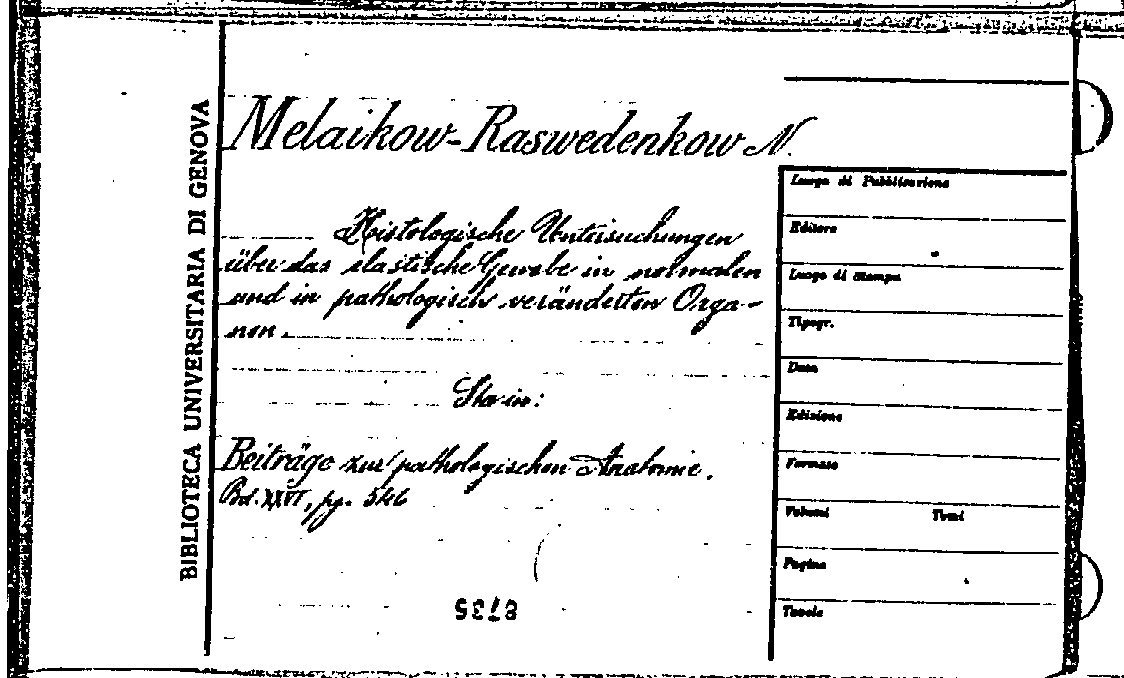 BIBLIOTECA UNIVERSITARIA DI GENOVA
Melaikow-Raswedenkow N.
Histologische Untersuchungen
über das elastische Gewebe in normalen
und in pathologisch veränderten Orga-
nen.
Sta in:
Beiträge zur pathologischen Anatomie.
Bd. XXVI, pp. 546
8735
Luogo di Pubblicazione
Editore
Luogo di stampa
Tipogr.
Data
Edizione
Formato
Volumi Tomi
Pagine
Tavole